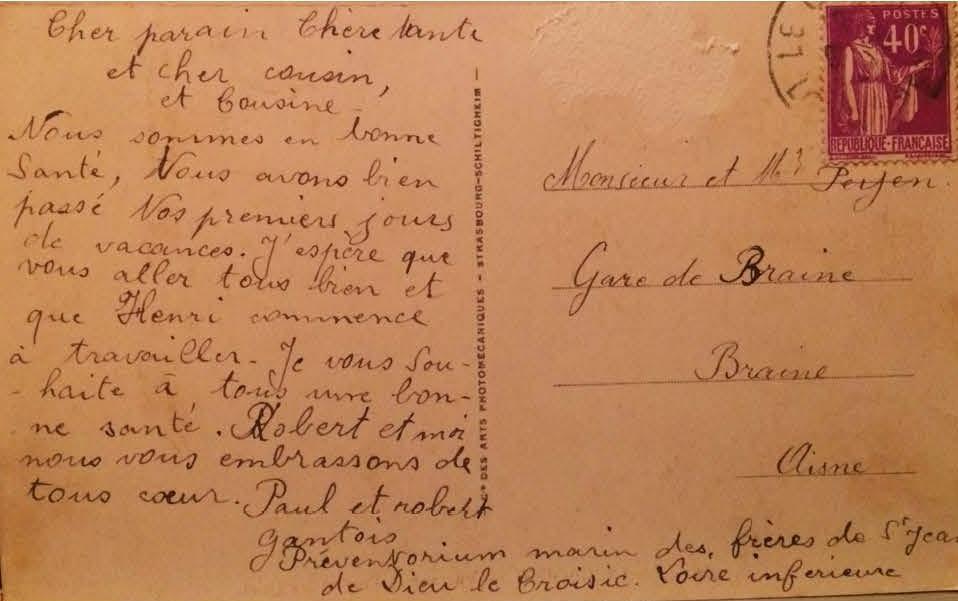 Cher parain Chère tante
et cher cousin,
et Cousine -
Nous sommes en bonne
Santé, Nous avons bien
passé Nos premiers jours
de vacances. J'espère que
vous aller tous bien et
que Henri commence
à travailler - Je vous sou-
- haite à tous une bon-
ne santé. Robert et moi
nous vous embrassons de
tous cœur. Paul et robert
Gantois
Préventorium marin des frères de St Jean
de Dieu le Croisic. Loire inferieure
Cie DES ARTS PHOTOMÉCANIQUES - STRASBOURG-SCHILTIGHEIM
31
POSTES
40c
RÉPUBLIQUE-FRANÇAISE
Monsieur et
Gare de Braine
Braine
Aisne